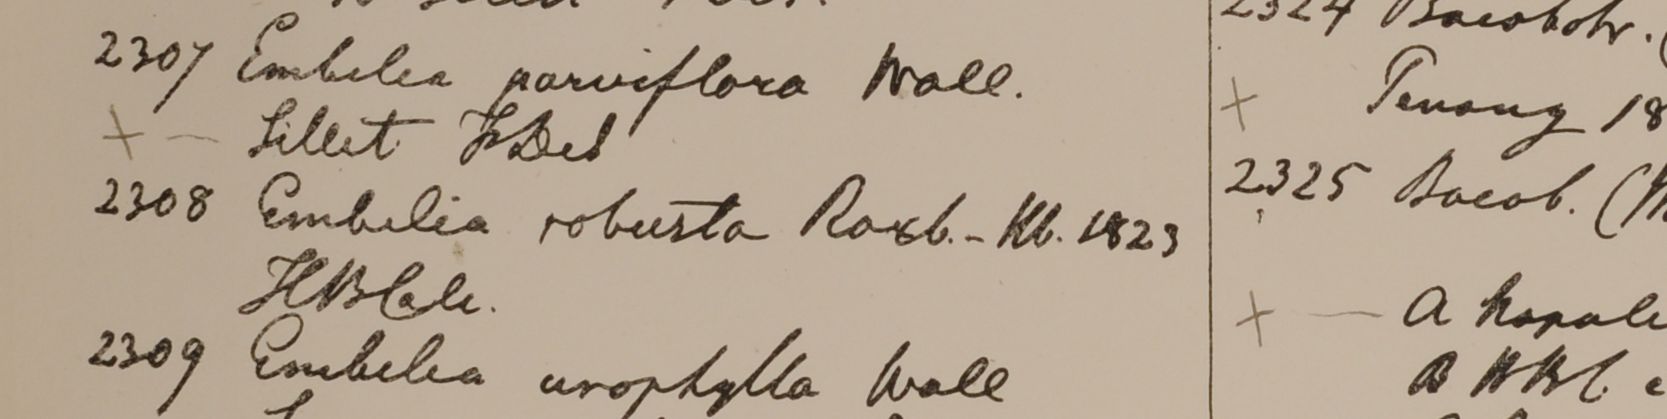 2307 Embelea parviflora Wall.
+ — Sillet FDeS
2308 Embelia robusta Roxb. - Kb. 1823
HBCalc.
2309 Embelea urophylla Wall
2324 Bacobotr. (
+ Penang 18
2325 Bacob. (
+ — a Napale